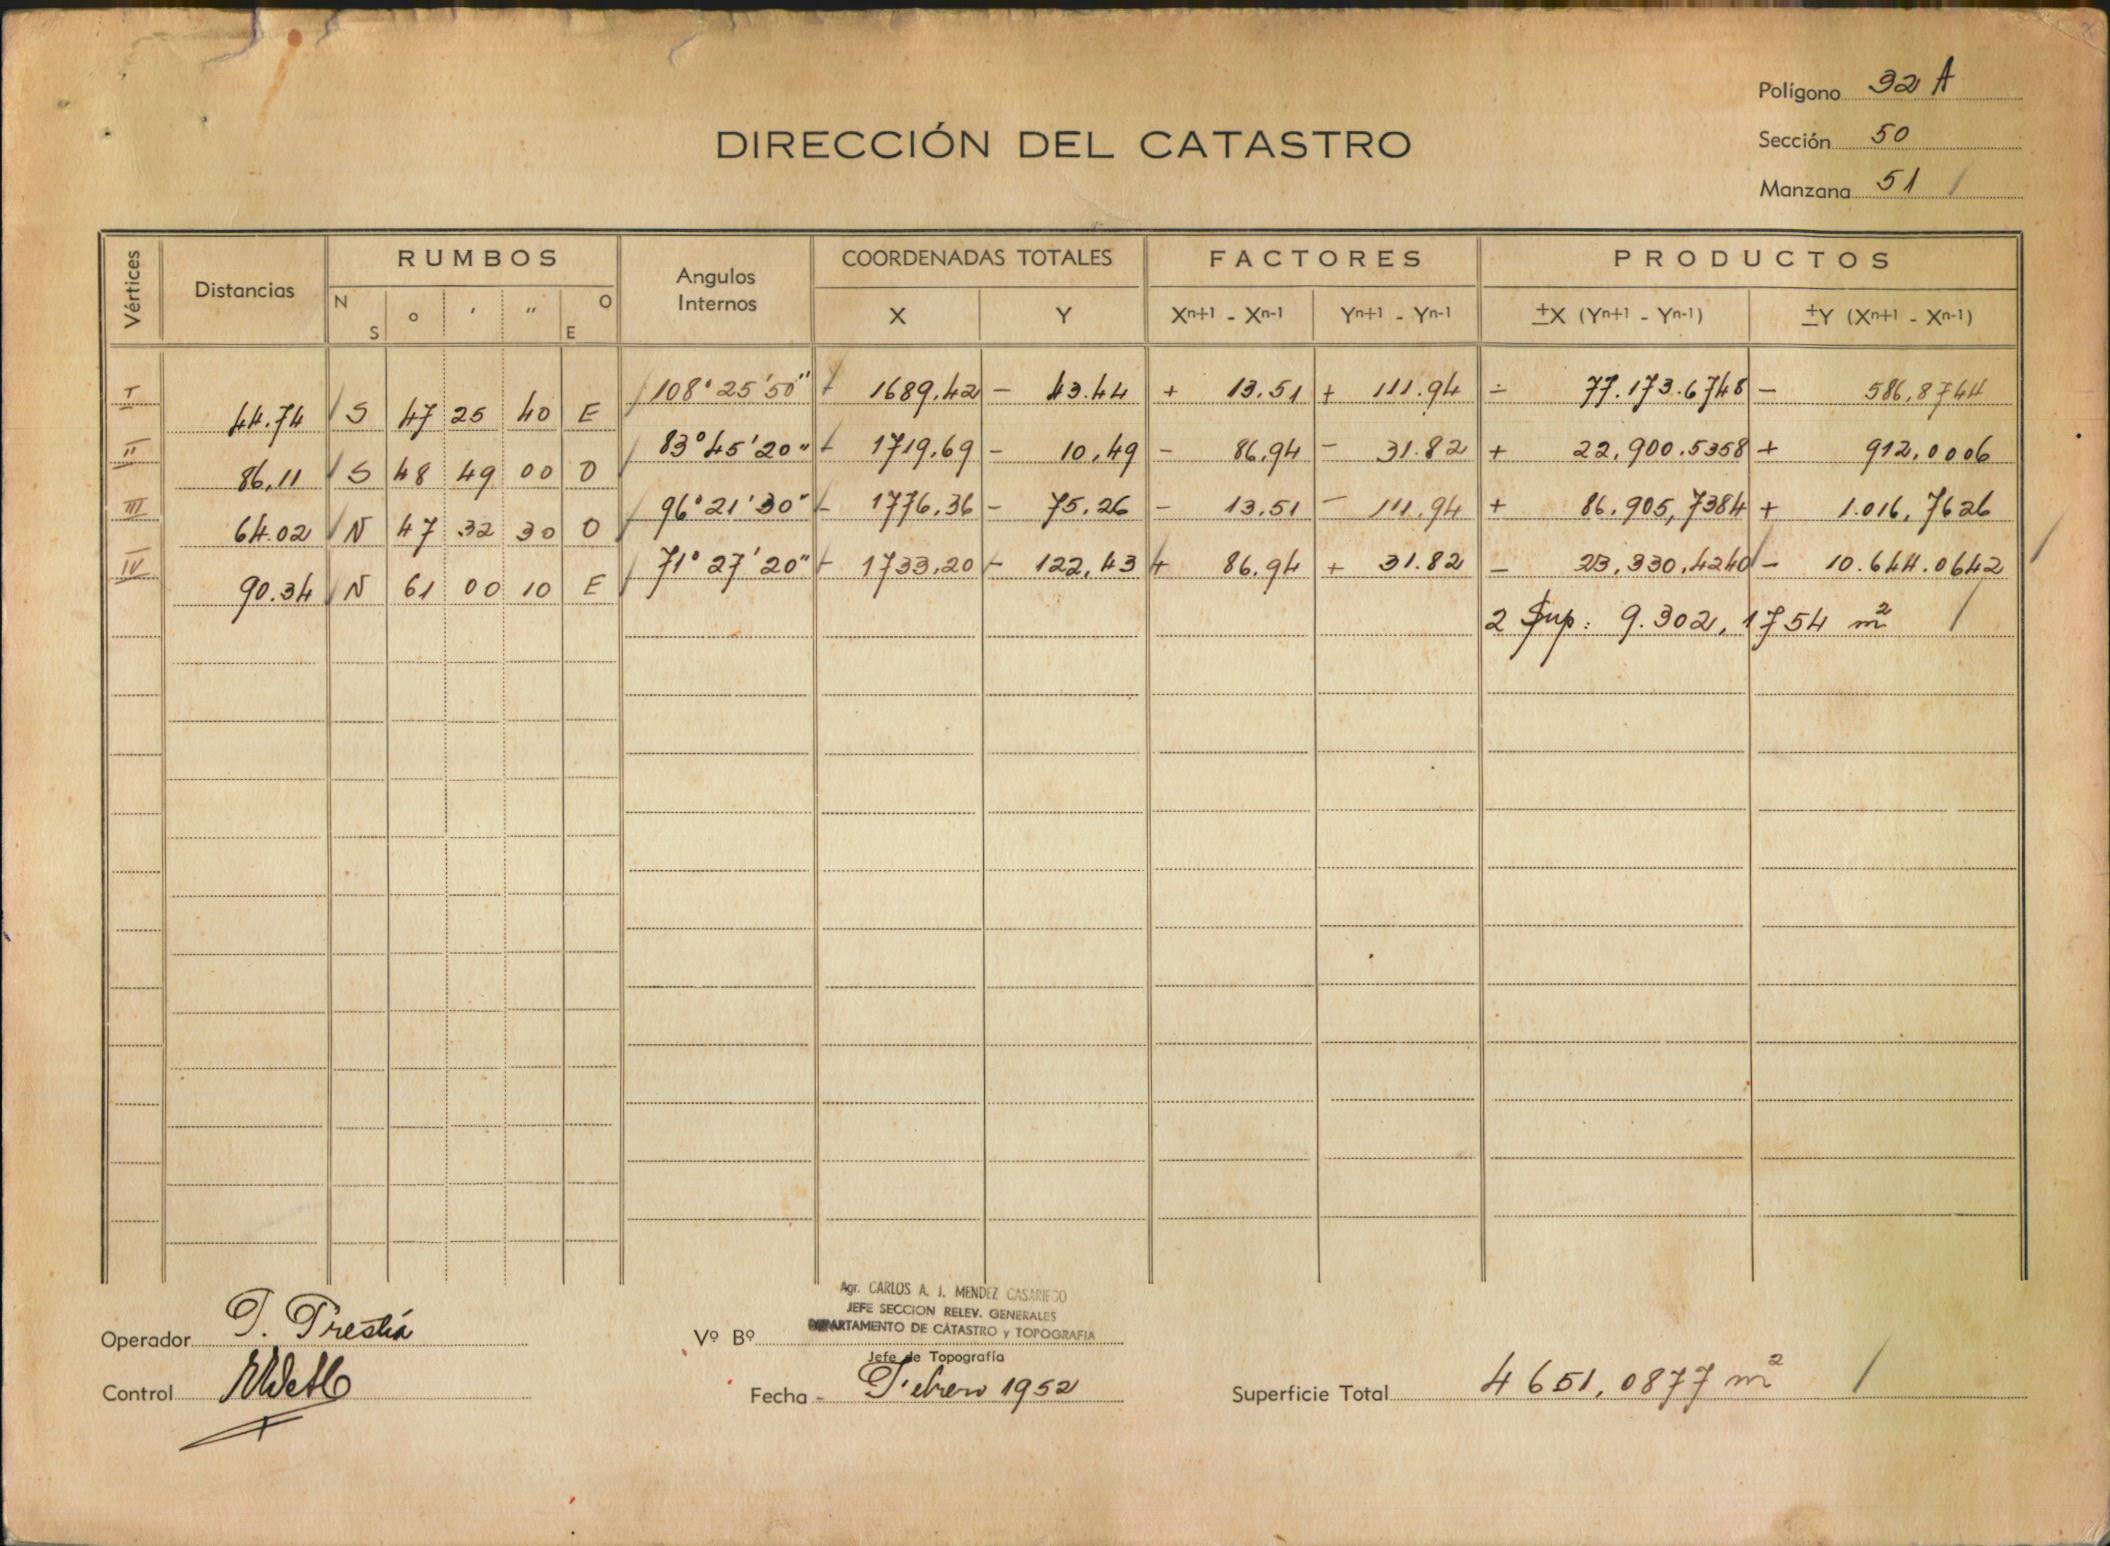 Polígono 32 A
DIRECCIÓN DEL CATASTRO
Sección 50
Manzana 51 /
Vértices Distancias RUMBOS Angulos Internos COORDENADAS TOTALES FACTORES PRODUCTOS
N S ° ' " O E X Y Xⁿ⁺¹ - Xⁿ⁻¹ Yⁿ⁺¹ - Yⁿ⁻¹ ±X (Yⁿ⁺¹ - Yⁿ⁻¹) ±Y (Xⁿ⁺¹ - Xⁿ⁻¹)
I 108° 25' 50" - 1689.42 - 43.44 + 13.51 + 111.94 - 77.173.6748 - 586,8744
44.74 S 47 25 40 E
II 83° 45' 20" - 1719.69 - 10.49 - 86.94 - 31.82 + 22,900.5358 + 912,0006
86.11 S 48 49 00 O
III 96° 21' 30" - 1776.36 - 75.26 - 13.51 - 111.94 + 86.905,7384 + 1.016,7626
64.02 N 47 32 30 O
IV 71° 27' 20" - 1733.20 - 122.43 + 86.94 + 31.82 - 23.330.4240 - 10.644.0642
90.34 N 61 00 10 E
2 Sup: 9.302,1754 m² /
Agr. CARLOS A. J. MENDEZ CASARIEGO
JEFE SECCION RELEV. GENERALES
DEPARTAMENTO DE CATASTRO y TOPOGRAFIA
Operador
Vº Bº
Jefe de Topografía
Control
Fecha - Febrero 1952
Superficie Total 4651,0877 m² /